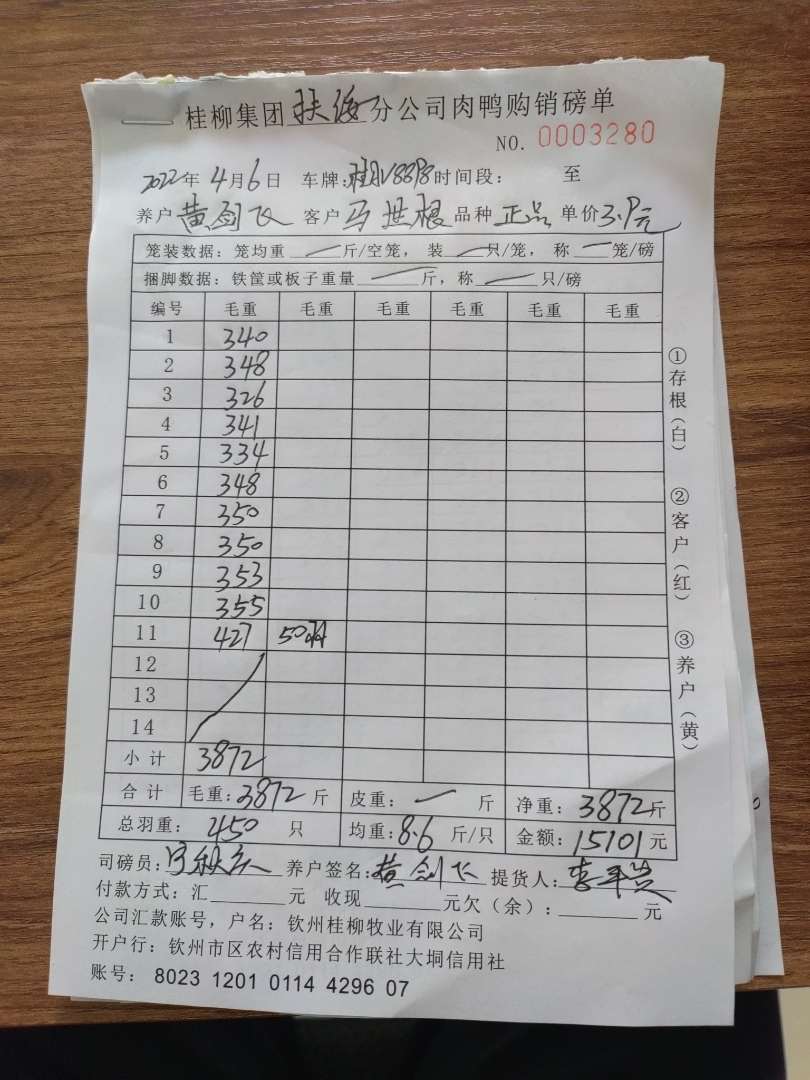 桂柳集团 分公司肉鸭购销磅单
NO. 0003280
2022年 4月6日 车牌: 时间段: 至
养户 黄剑飞 客户 马世根 品种 正品 单价 3.9元
笼装数据:笼均重 — 斤/空笼,装 — 只/笼,称 — 笼/磅
捆脚数据:铁筐或板子重量 — 斤,称 — 只/磅
编号 毛重 毛重 毛重 毛重 毛重 毛重
1 340
2 348
3 326
4 341
5 334
6 348
7 350
8 350
9 353
10 355
11 427 50羽
12
13
14
小计 3872
合计 毛重:3872 斤 皮重: — 斤 净重:3872斤
总羽重: 450 只 均重:8.6 斤/只 金额:15101 元
司磅员: 养户签名:黄剑飞 提货人:
付款方式:汇 元 收现 元欠(余): 元
公司汇款账号,户名:钦州桂柳牧业有限公司
开户行:钦州市区农村信用合作联社大垌信用社
账号: 8023 1201 0114 4296 07
①存根(白) ②客户(红) ③养户(黄)